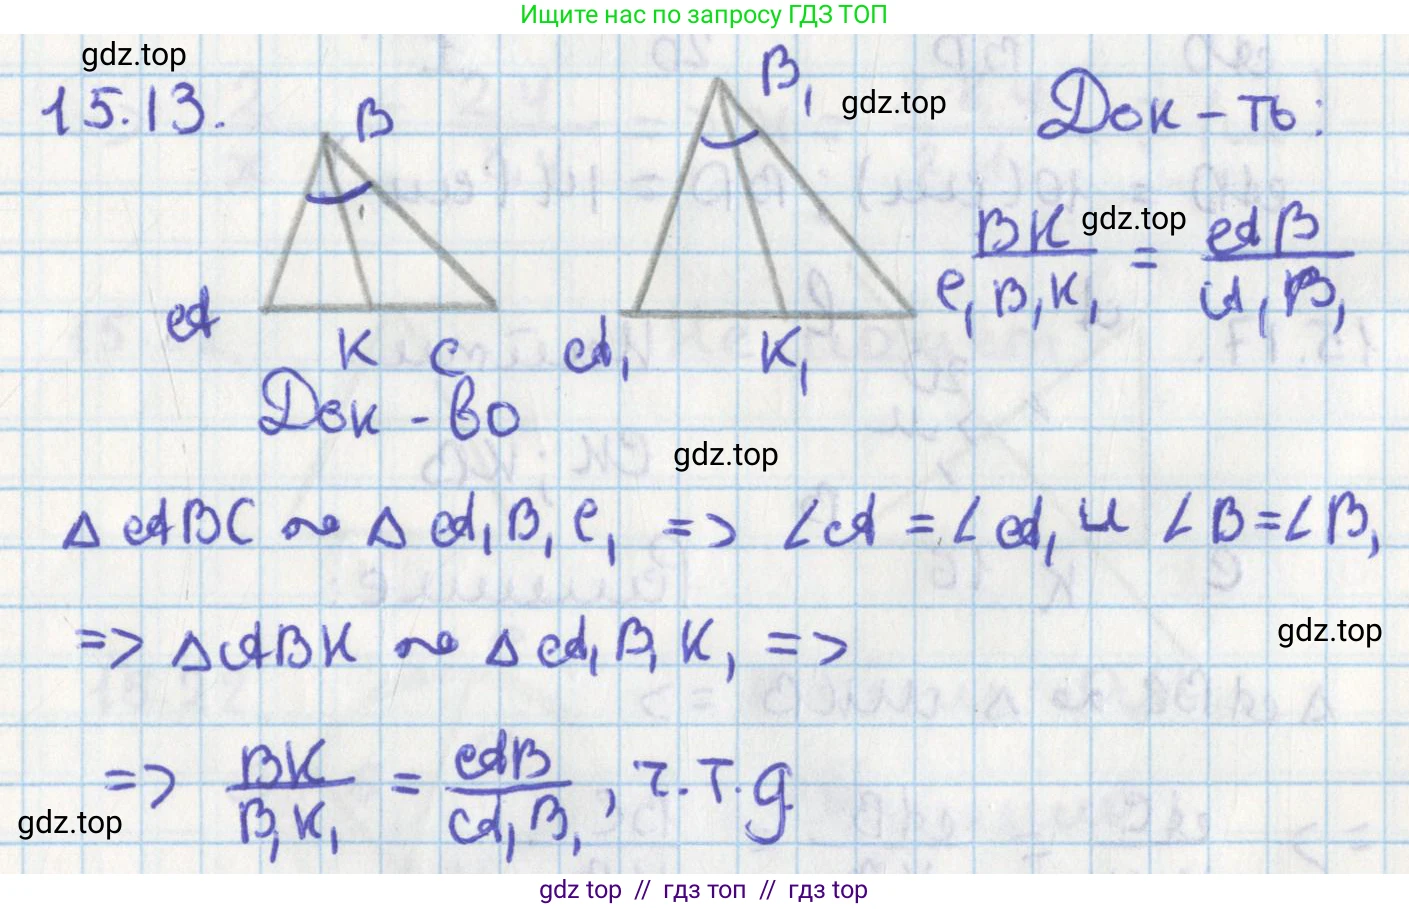 Ищите нас по запросу ГДЗ ТОП
gdz.top
15.13.
B
B₁
gdz.top
Док-ть:
BK / C₁B₁K₁ = AB / A₁B₁
gdz.top
A
K
C
A₁
K₁
Док-во
gdz.top
△ABC ~ △A₁B₁C₁ => ∠A = ∠A₁ и ∠B = ∠B₁
=> △ABK ~ △A₁B₁K₁ =>
gdz.top
=> BK / B₁K₁ = AB / A₁B₁, ч.т.д
gdz.top
gdz top // гдз топ // gdz top